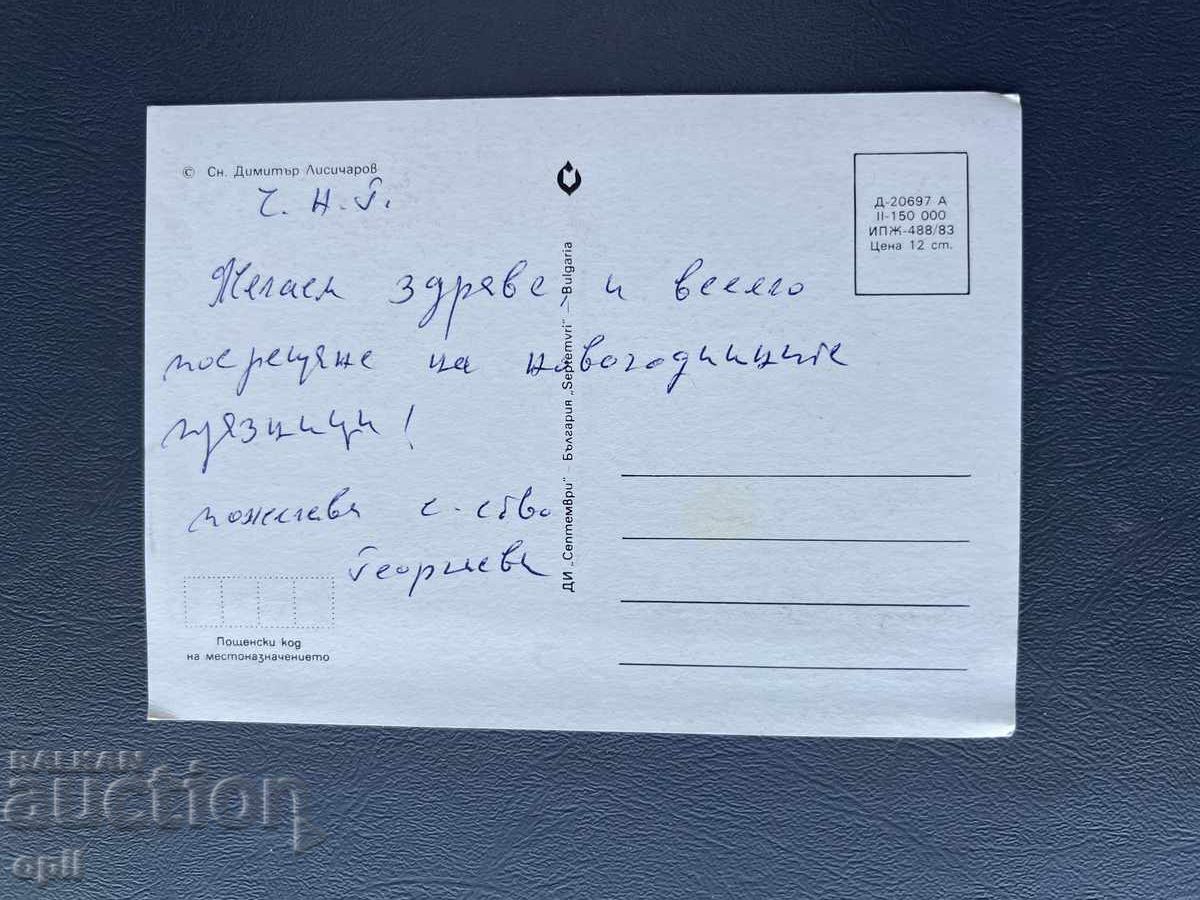 © Сн. Димитър Лисичаров
Ч. Н. Г.
Желаем здраве, и весело
посрещане на новогодишните
празници!
с-ство
Георгиеви
ДИ „Септември“ – България „Septemvri“ – Bulgaria
Д-20697 А
II-150 000
ИПЖ-488/83
Цена 12 ст.
Пощенски код
на местоназначението
BALKAN
auction
opll